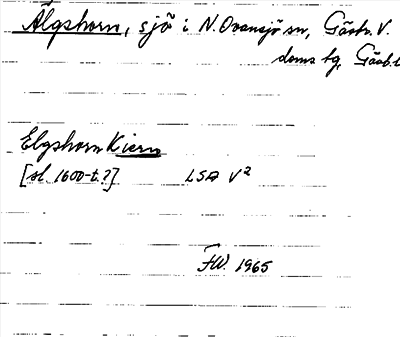 Älgshorn, sjö i N. Ovansjö sn, Gästr. V.
doms tg, Gävl.
Elgshorn Kiern
[sl. 1600-t.?] LSA V²
FW. 1965